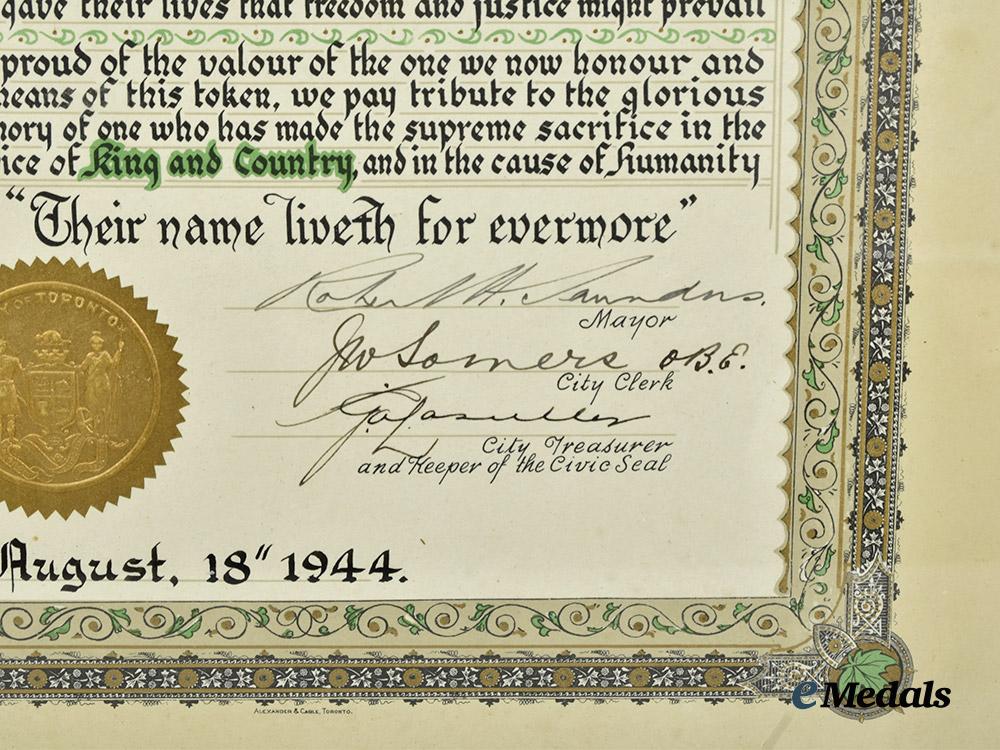 gave their lives that freedom and justice might prevail
proud of the valour of the one we now honour and
means of this token, we pay tribute to the glorious
of one who has made the supreme sacrifice in the
of King and Country, and in the cause of Humanity
"Their name liveth for evermore"
OF TORONTO
Robert H. Saunders.
Mayor
JW Somers O.B.E.
City Clerk
City Treasurer
and Keeper of the Civic Seal
August, 18" 1944.
ALEXANDER & CABLE, TORONTO.
eMedals